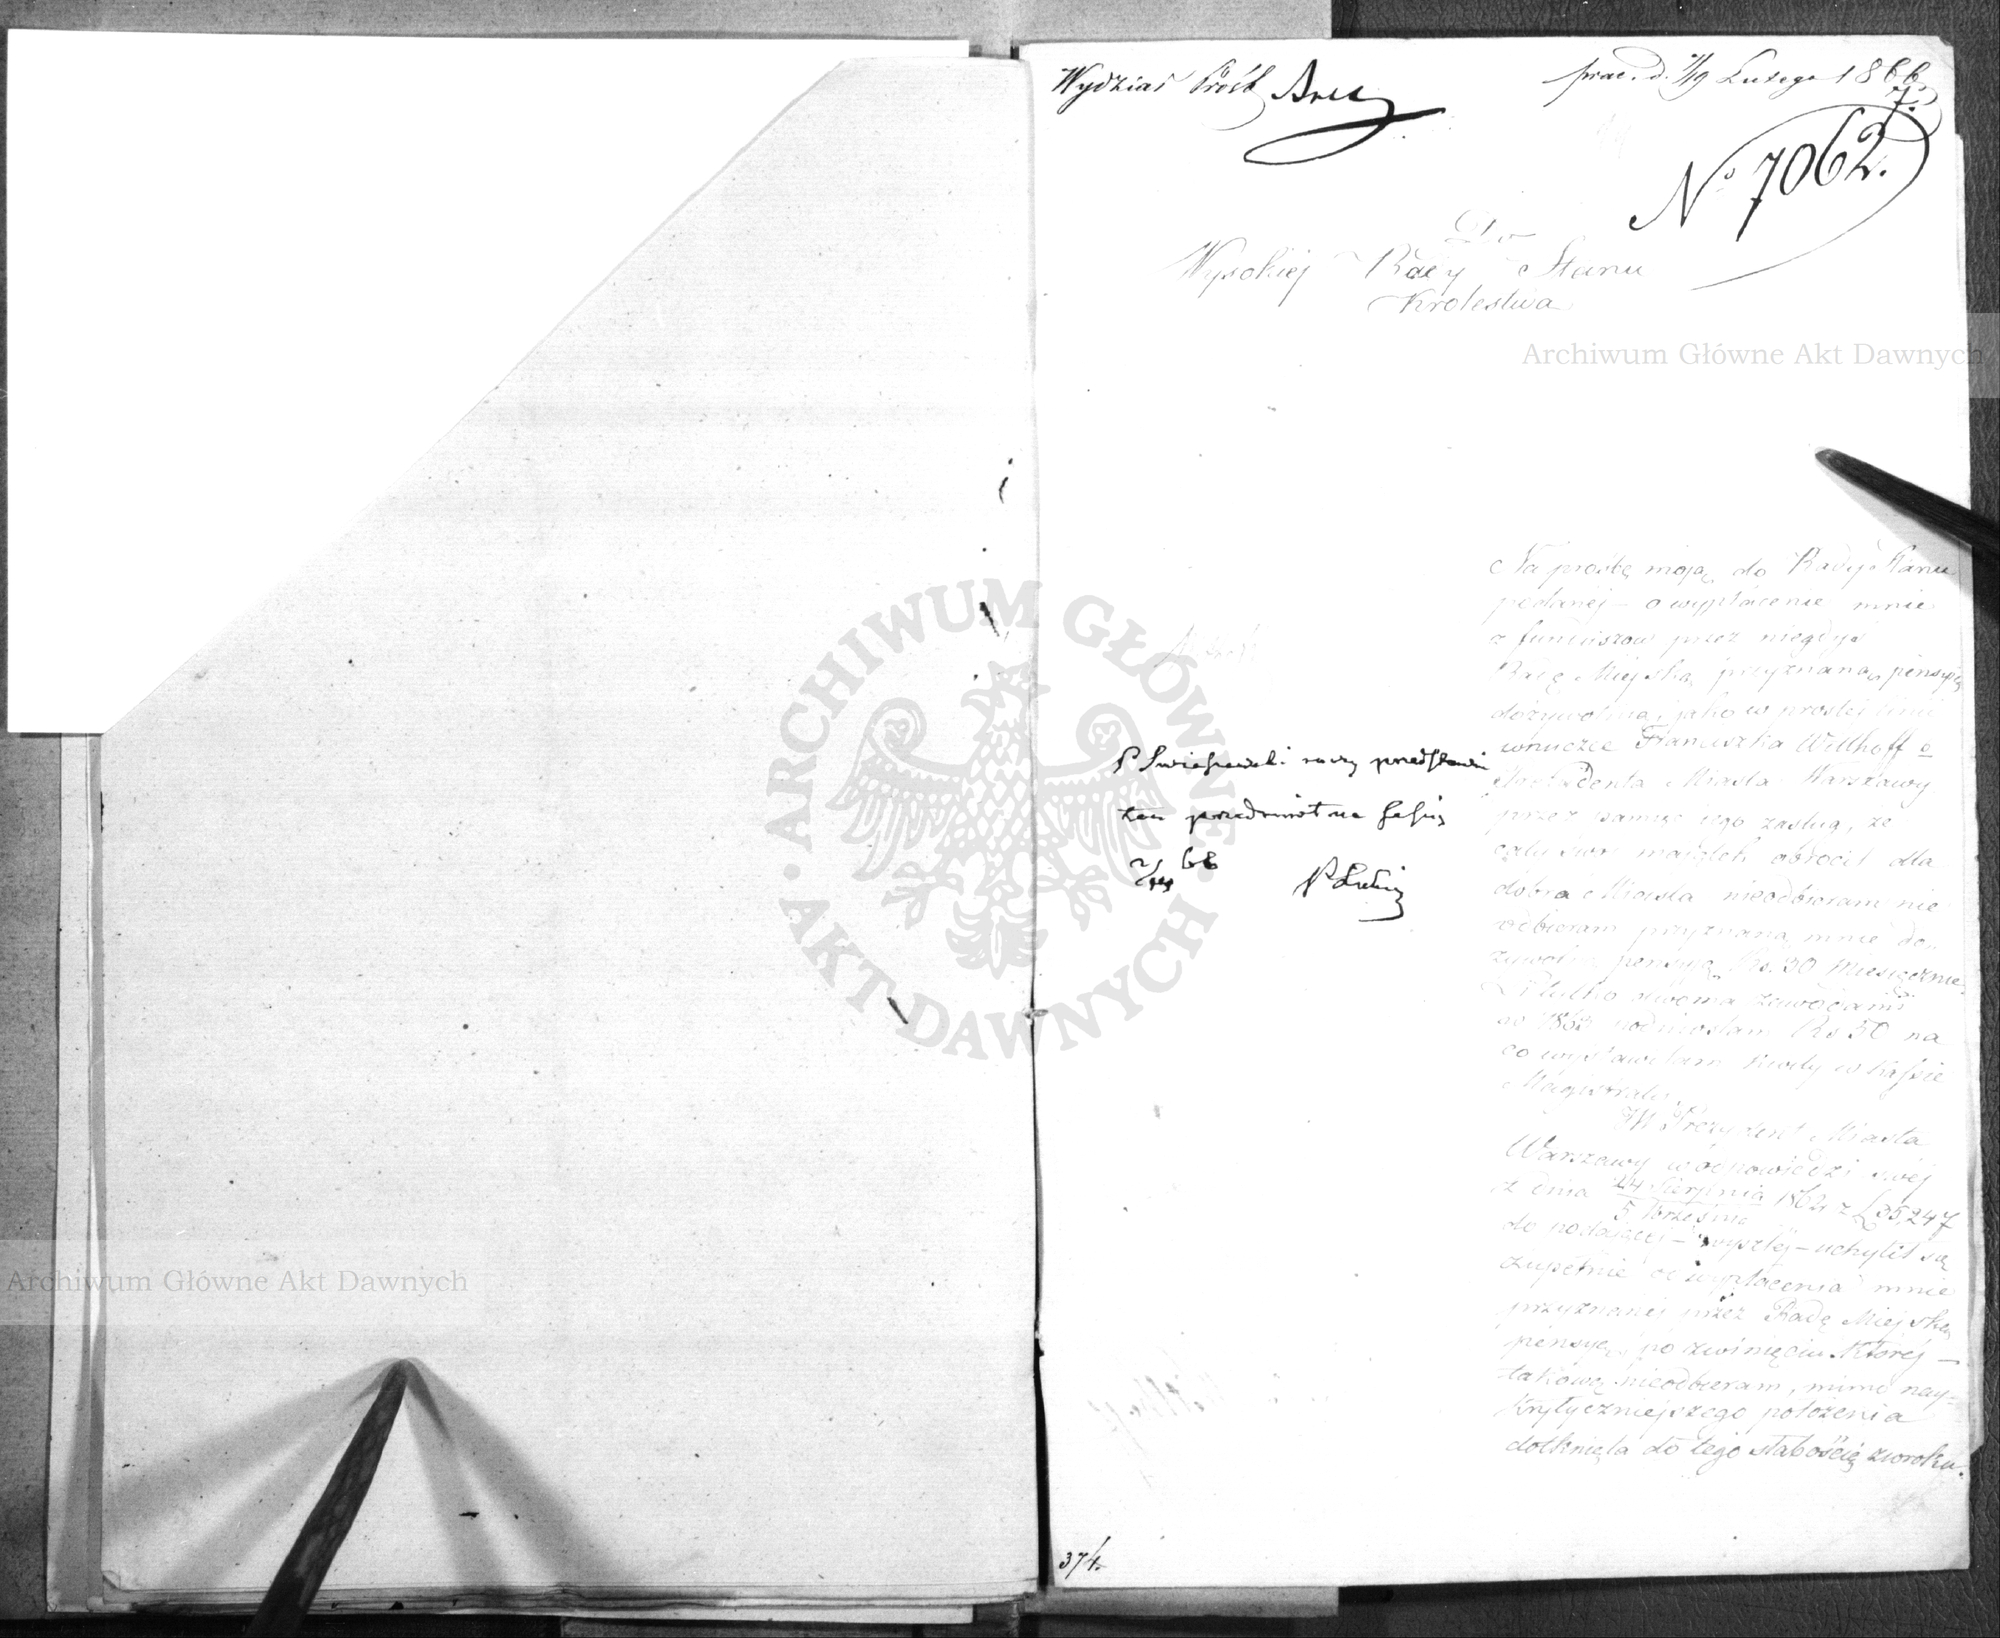 Wydział Próśb
prac. d. 7/19 Lutego 1866
No 7062.
Do
Wysokiej Rady Stanu
Krolestwa
Archiwum Główne Akt Dawnych
Na prosbę moją do Rady Stanu
podanej – o wypłacenie mnie
z funduszow przez niegdyś
Radę Miejską przyznaną pensyią
dożywotnią, jako w prostej linii
wnuczce Franciszka Witthoff
Prezydenta Miasta Warszawy
przez pamięc iego zasług, że
cały swoj majątek obrocił dla
dobra Miasta nieodbieram nie
odbieram przyznaną mnie do-
pensyą Rs. 30 miesięcznie
tylko dwoma
1863 podniosłam Rs 50 na
co wystawiłam kwity w Kassie
Magistratu.
JW Prezydent Miasta
Warszawy w odpowiedzi swéj
z dnia 24 Sierpnia / 5 Wrześnią 1862 z L 35,247
do podającej – wyszłej – uchylił się
zupełnie od wypłacenia mnie
przyznanej przez Radę Miejską
pensyi, po zwinięciu Któréj –
takowę nieodbieram, mimo nay-
Krytyczniejszego położenia
dotknięta do tego słabością wzroku.
ARCHIWUM GŁÓWNE · AKT DAWNYCH ·
P raczy przedstawić
ten przedmiot na Sessią
66
Archiwum Główne Akt Dawnych
374